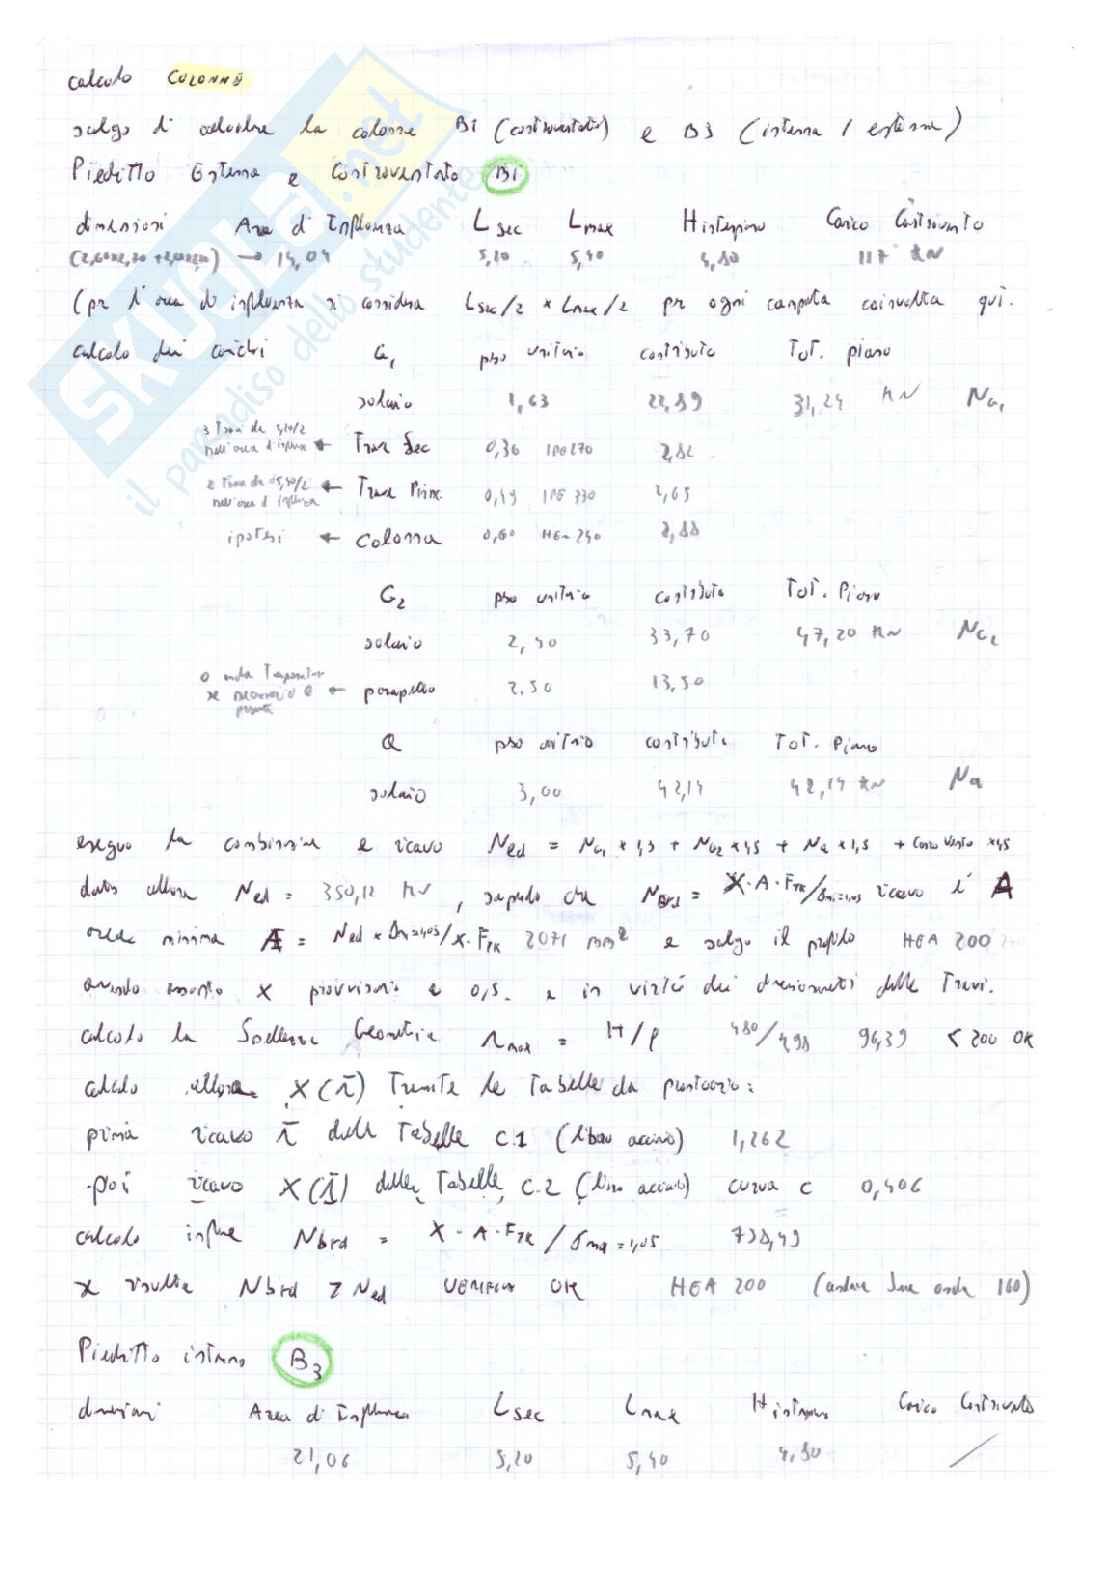 calcolo COLONNE
scelgo di calcolare la colonna B1 (controventata) e B3 (interna / esterna)
Piedritto Esterno e Controventato B1
dimensioni Area di Influenza Lsec Lmax Hinterpiano Carico Controvento
→ 14,04 5,20 5,40 4,80 117 KN
(per l'area di influenza si considera Lsec/2 * Lmax/2 per ogni campata coinvolta qui.
calcolo dei carichi G1 peso unitario contributo Tot. piano
solaio 1,63 22,89 31,24 KN NG1
3 Travi da 5,20/2 nell'area d'influenza ← Trave Sec 0,36 IPE270 2,82
2 Travi da 5,40/2 nell'area d'influenza ← Trave Princ. 0,49 IPE 330 2,65
ipotesi ← colonna 0,60 HEA 240 2,88
G2 peso unitario contributo Tot. Piano
solaio 2,40 33,70 47,20 KN NG2
← parapetto 2,50 13,50
Q peso unitario contributo Tot. Piano
solaio 3,00 42,14 42,14 KN NQ
eseguo la combinazione e ricavo Ned = NG1 * 1,3 + NG2 * 1,5 + NQ * 1,5 + Carico Vento * 1,5
dato allora Ned = 350,12 KN, sapendo che Nbrd = X · A · FYK / γm1=1,05 ricavo l' A
area minima A = Ned * γm=1,05 / X · FYK 2071 mm² e scelgo il profilo HEA 200
avendo assunto X provvisorio a 0,5. e in virtù dei dimensionamenti delle Travi.
calcolo la Snellezza Geometrica λmax = H/ρ 480/4,98 96,39 < 200 OK
calcolo allora X(λ̄) Tramite le Tabelle da prontuario:
prima ricavo λ̄ dalla Tabella C.1 (libro acciaio) 1,262
poi ricavo X(λ̄) dalla Tabella C.2 (libro acciaio) curva c 0,406
calcolo infine Nbrd = X · A · FYK / γm1=1,05 738,49
e risulta Nbrd ≥ Ned VERIFICA OK HEA 200 (andava bene anche 160)
Piedritto interno B3
dimensioni Area di Influenza Lsec Lmax Hinterpiano Carico Controvento
21,06 5,20 5,40 4,80 /
SKUOLA.net
il paradiso dello studente